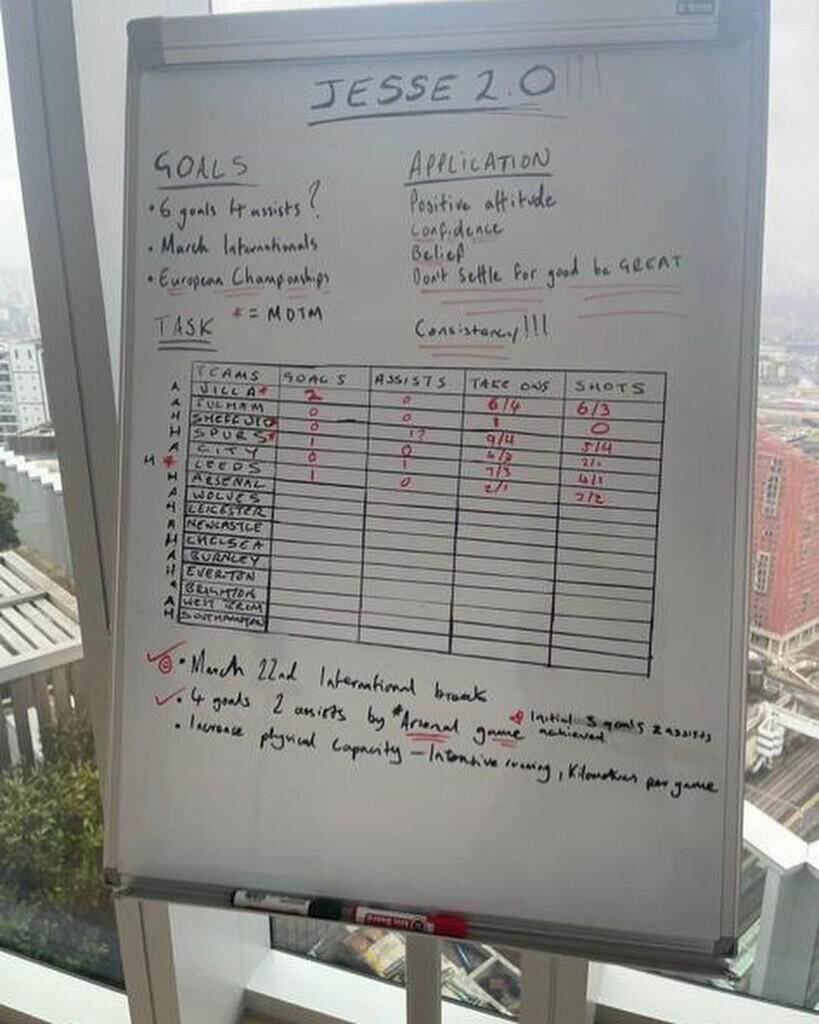 JESSE 2.0!!!
GOALS
• 6 goals 4 assists?
• March Internationals
• European Championships
TASK * = MOTM
APPLICATION
Positive attitude
Confidence
Belief
Don't settle for good be GREAT
Consistancy!!!
TEAMS GOALS ASSISTS TAKE ONS SHOTS
A VILLA* 2 0 6/4 6/3
A FULHAM 0 0 1 0
H SHEFF UTD 0 1? 9/4 5/4
H SPURS* 1 0
A CITY 0 1 7/3 4/1
H * LEEDS 1 0 2/1 2/2
H ARSENAL
A WOLVES
H LEICESTER
A NEWCASTLE
H CHELSEA
A BURNLEY
H EVERTON
BRIGHTON
A WEST BROM
H SOUTHAMPTON
• March 22nd International break
• 4 goals 2 assists by *Arsenal game
Initial 3 goals 2 assists
achieved
• Increase physical capacity – Intensive running, Kilometres per game